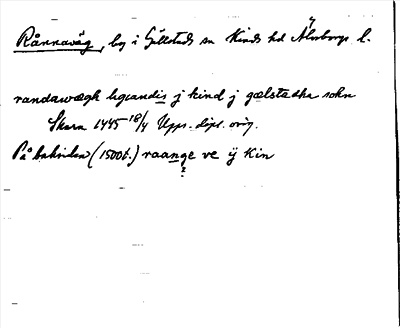 Rånnaväg, by i Gällstads sn Kinds hd Älvsborgs l.
randawægh liggandis j kind j gælstadha sokn
Skara 1445 18/4 Upps. dipl. orig.
På baksidan (1500t.) raange ve ÿ Kin
?